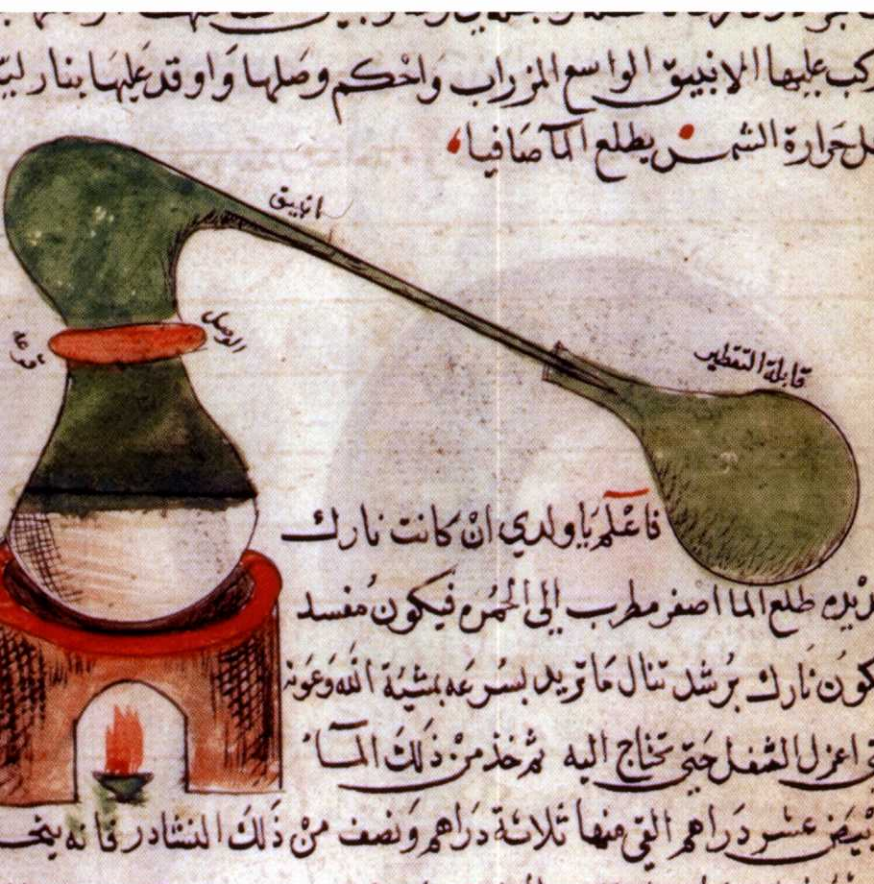 كب عليها الانبيق الواسع المزراب واحكم وصلها واوقد عليها بنار
حرارة الشمس يطلع الما صافيا
انبيق
الوصل
قرعه
قابلة التقطير
فاعلم يا ولدي ان كانت نارك
طلع الما اصفر مطرب إلى الحمره فيكون مفسد
كون نارك برشد تنال ما تريد بسرعه بمشية الله وعونه
اعزل الثفل حتى تحتاج اليه ثم خذ من ذلك الماء
عشر دراهم القي منها ثلاثة دراهم ونصف من ذلك النشادر فانه